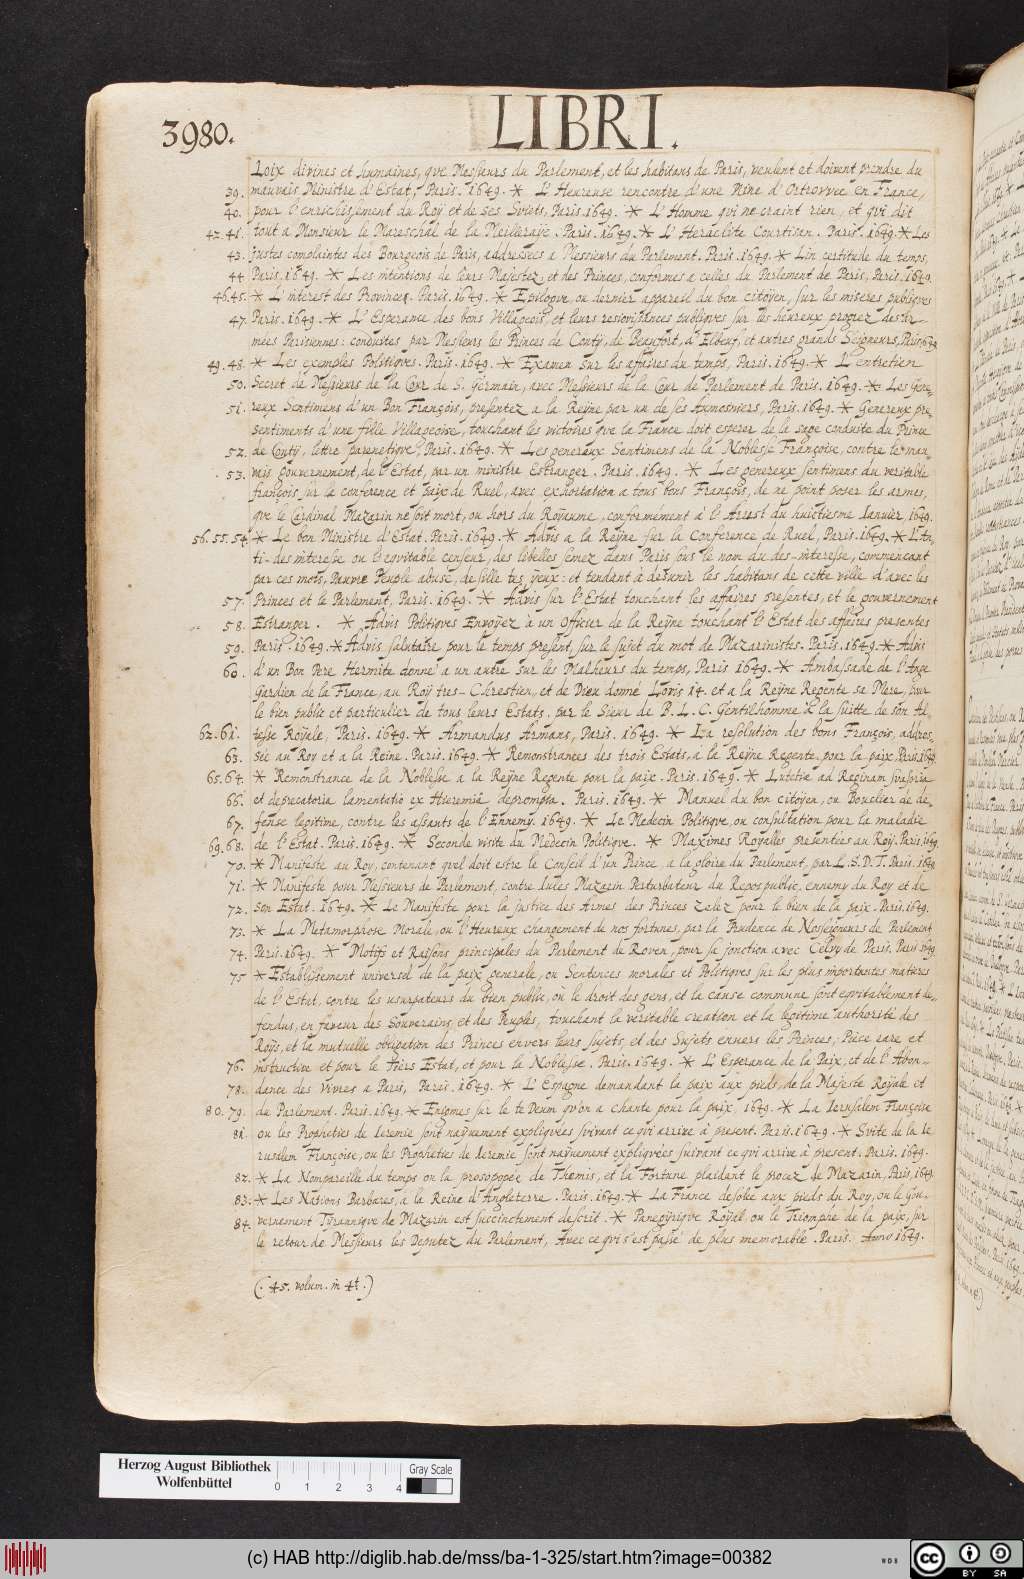 3980.
LIBRI.
Loix divines et humaines, que Messieurs du Parlement, et les habitans de Paris, veulent et doivent prendre du
39. mauvais Ministre d'Estat, Paris. 1649. * L'Heureuse rencontre d'une Mine d'Or trovvee en France,
40. pour l'enrichissement du Roy et de ses Suiets, Paris. 1649. * L'Homme qui ne craint rien, et qui dit
42. 41. tout a Monsieur le Mareschal de la Meilleraye. Paris. 1649. * L'Heraclite Courtisan. Paris. 1649. * Les
43. justes complaintes des Bourgeois de Paris, addressees a Messieurs du Parlement. Paris. 1649. * L'in certitude du temps,
44. Paris, 1649. * Les intentions de leurs Majestez, et des Princes, conformes a celles du Parlement de Paris, Paris. 1649.
46. 45. * L'interest des Provinces. Paris. 1649. * Epilogue, ou dernier appareil du bon citoyen, sur les miseres publiques
47. Paris. 1649. * L'Esperance des bons Villageois, et leurs resiouissances publiques sur les heureux progrez des Ar
mées Parisiennes: conduites par Messieurs les Princes de Conty, de Beaufort, d'Elbeuf, et autres grands Seigneurs, Paris, 1649
49. 48. * Les exemples Politiques. Paris. 1649. * Examen sur les affaires du temps, Paris. 1649. * L'entretien
50. Secret de Messieurs de la Cour de S. Germain, avec Messieurs de la Cour de Parlement de Paris. 1649. * Les Gene-
51. reux Sentimens d'un Bon François, presentez a la Reyne par un de ses Aumosniers, Paris. 1649. * Genereux pre
sentiments d'une fille Villageoise, touchant les victoires que la France doit esperer de la sage conduite du Prince
52. de Conty, lettre parenetique, Paris. 1649. * Les genereux Sentimens de la Noblesse Françoise, contre le mau
53. vais gouvernement, de l'Estat, par un ministre Estranger. Paris. 1649. * Les genereux sentimens du veritable
françois, sur la conference et paix de Ruel, avec exhortation a tous bons François, de ne point poser les armes,
que le Cardinal Mazarin ne soit mort, ou hors du Royaume, conformément à l'Arrest du huictiesme Ianvier, 1649.
56. 55. 54. * Le bon Ministre d'Estat. Paris. 1649. * Advis a la Reyne sur la Conference de Ruel, Paris. 1649. * L'An
ti-des interesse ou l'equitable censeur, des libelles semez dans Paris sous le nom du des-interesse, commencant
par ces mots, Pauvre Peuple abusé, desille tes yeux: et tendant à desunir les habitans de cette ville d'avec les
57. Princes et le Parlement, Paris. 1649. * Advis sur l'Estat touchant les affaires presentes, et le gouvernement
58. Estranger. * Advis Politiques Envoyez à un Officier de la Reyne touchant l'Estat des affaires presentes
59. Paris. 1649. * Advis salutaire pour le temps present, sur le sujet du mot de Mazarinistes. Paris. 1649. * Advis
60. d'un Bon Pere Hermite donné a un autre sur les Malheurs du temps, Paris 1649. * Ambassade de l'Ange
Gardien de la France, au Roy tres-Chrestien, et de Dieu donné Lovis 14. et a la Reyne Regente sa Mere, pour
le bien public et particulier de tous leurs Estats, par le Sieur de B. L. C. Gentilhomme à la suitte de son Al-
62. 61. tesse Royale, Paris. 1649. * Armandus Armans, Paris. 1649. * La resolution des bons François, addres
63. sée au Roy et a la Reine. Paris. 1649. * Remonstrances des trois Estats, a la Reyne Regente, pour la paix. Paris. 1649.
65. 64. * Remonstrance de la Noblesse a la Reyne Regente pour la paix. Paris. 1649. * Lutetiæ ad Reginam suasoria
66. et deprecatoria lamentatio ex Hieremiâ deprompta. Paris. 1649. * Manuel du bon citoyen, ou Bouclier de de
67. fense legitime, contre les assauts de l'Ennemy. 1649. * Le Medecin Politique, ou consultation pour la maladie
69. 68. de l'Estat. Paris. 1649. * Seconde visite du Medecin Politique. * Maximes Royalles presentées au Roy. Paris. 1649.
70. * Manifeste au Roy, contenant quel doit estre le Conseil d'un Prince, a la gloire du Parlement, par L. S. D. T. Paris. 1649.
71. * Manifeste pour Messieurs de Parlement, contre Iules Mazarin Perturbateur du Repos public, ennemy du Roy et de
72. son Estat. 1649. * Le Manifeste pour la justice des Armes des Princes zelez pour le bien de la paix. Paris. 1649.
73. * La Metamorphose Morale, ou l'Heureux changement de nos fortunes, par la Prudence de Nosseigneurs de Parlement
74. Paris. 1649. * Motifs et Raisons principales du Parlement de Roven, pour sa jonction avec Celuy de Paris. Paris 1649
75 * Establissement universel de la paix generale, ou Sentences morales et Politiques sur les plus importantes matieres
de l'Estat, contre les usurpateurs du bien public, où le droit des gens, et la cause commune sont equitablement de-
fendus, en faveur des Souverains, et des Peuples, touchant la veritable creation et la legitime authorité des
Roys, et la mutuelle obligation des Princes envers leurs Sujets, et des Sujets envers les Princes; Piece rare et
76. instructive et pour le Tiers Estat, et pour le Noblesse. Paris. 1649. * L'Esperance de la Paix, et de l'Abon-
78. dance des vivres a Paris, Paris. 1649. * L'Espagne demandant la paix aux pieds, de la Majesté Royale et
80. 79. de Parlement. Paris. 1649. * Enigmes sur le te Deum qu'on a chanté pour la paix, 1649. * La Ierusalem Françoise
81. ou les Propheties de Ieremie sont nayuement expliquées suivant ce qui arrive à present. Paris. 1649. * Suite de la Ie
rusalem Françoise, ou les Propheties de Ieremie sont nayuement expliquées suivant ce qui arrive à present. Paris. 1649.
82. * La Nompareille du temps ou la prosopopee de Themis, et la Fortune plaidant le procez de Mazarin, Paris, 1649
83. * Les Nations Barbares, a la Reine d'Angleterre. Paris. 1649. * La France desolée aux pieds du Roy, ou le Gou-
84. vernement Tyrannique de Mazarin est succinctement descrit. * Panegyrique Royal, ou le Triomphe de la paix, sur
le retour de Messieurs les Deputez du Parlement, Avec ce qui s'est passé de plus memorable. Paris. Anno 1649.
(. 45. volum. in 4t.)
Herzog August Bibliothek
Wolfenbüttel
0 1 2 3 4
Gray Scale
(c) HAB http://diglib.hab.de/mss/ba-1-325/start.htm?image=00382
WDB
cc BY SA